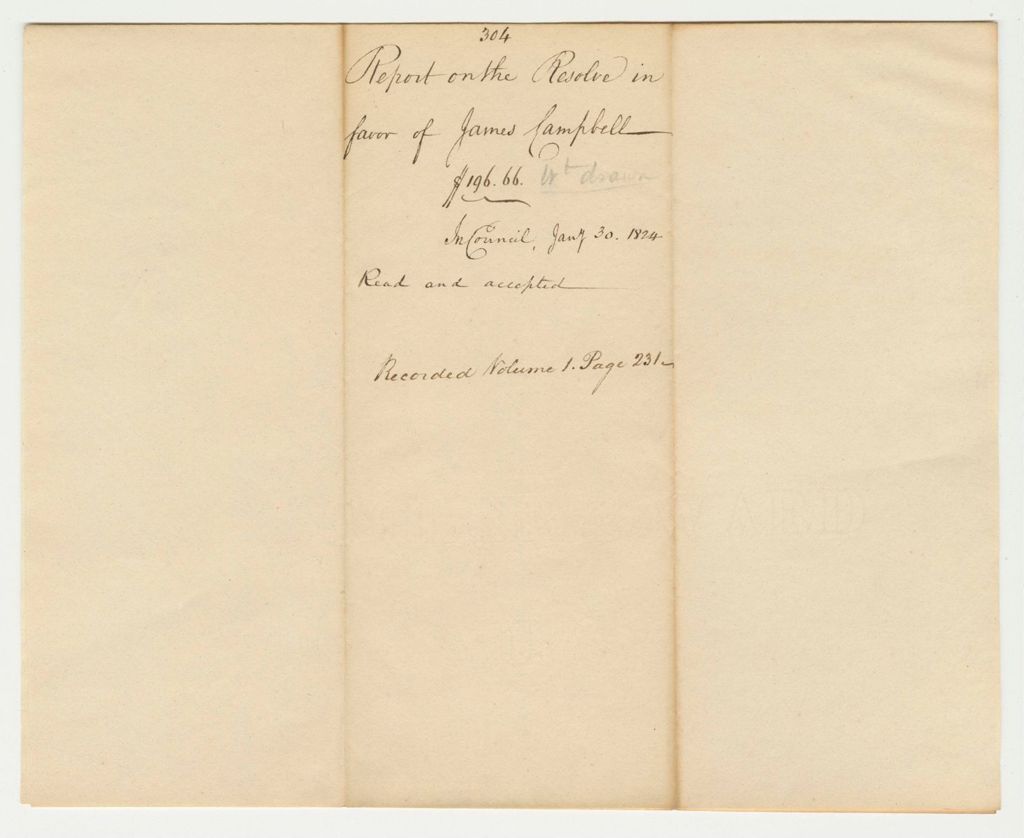 304
Report on the Resolve in
favor of James Campbell
$196.66. Wt drawn
In Council, Jany 30. 1824
Read and accepted
Recorded Volume 1. Page 231